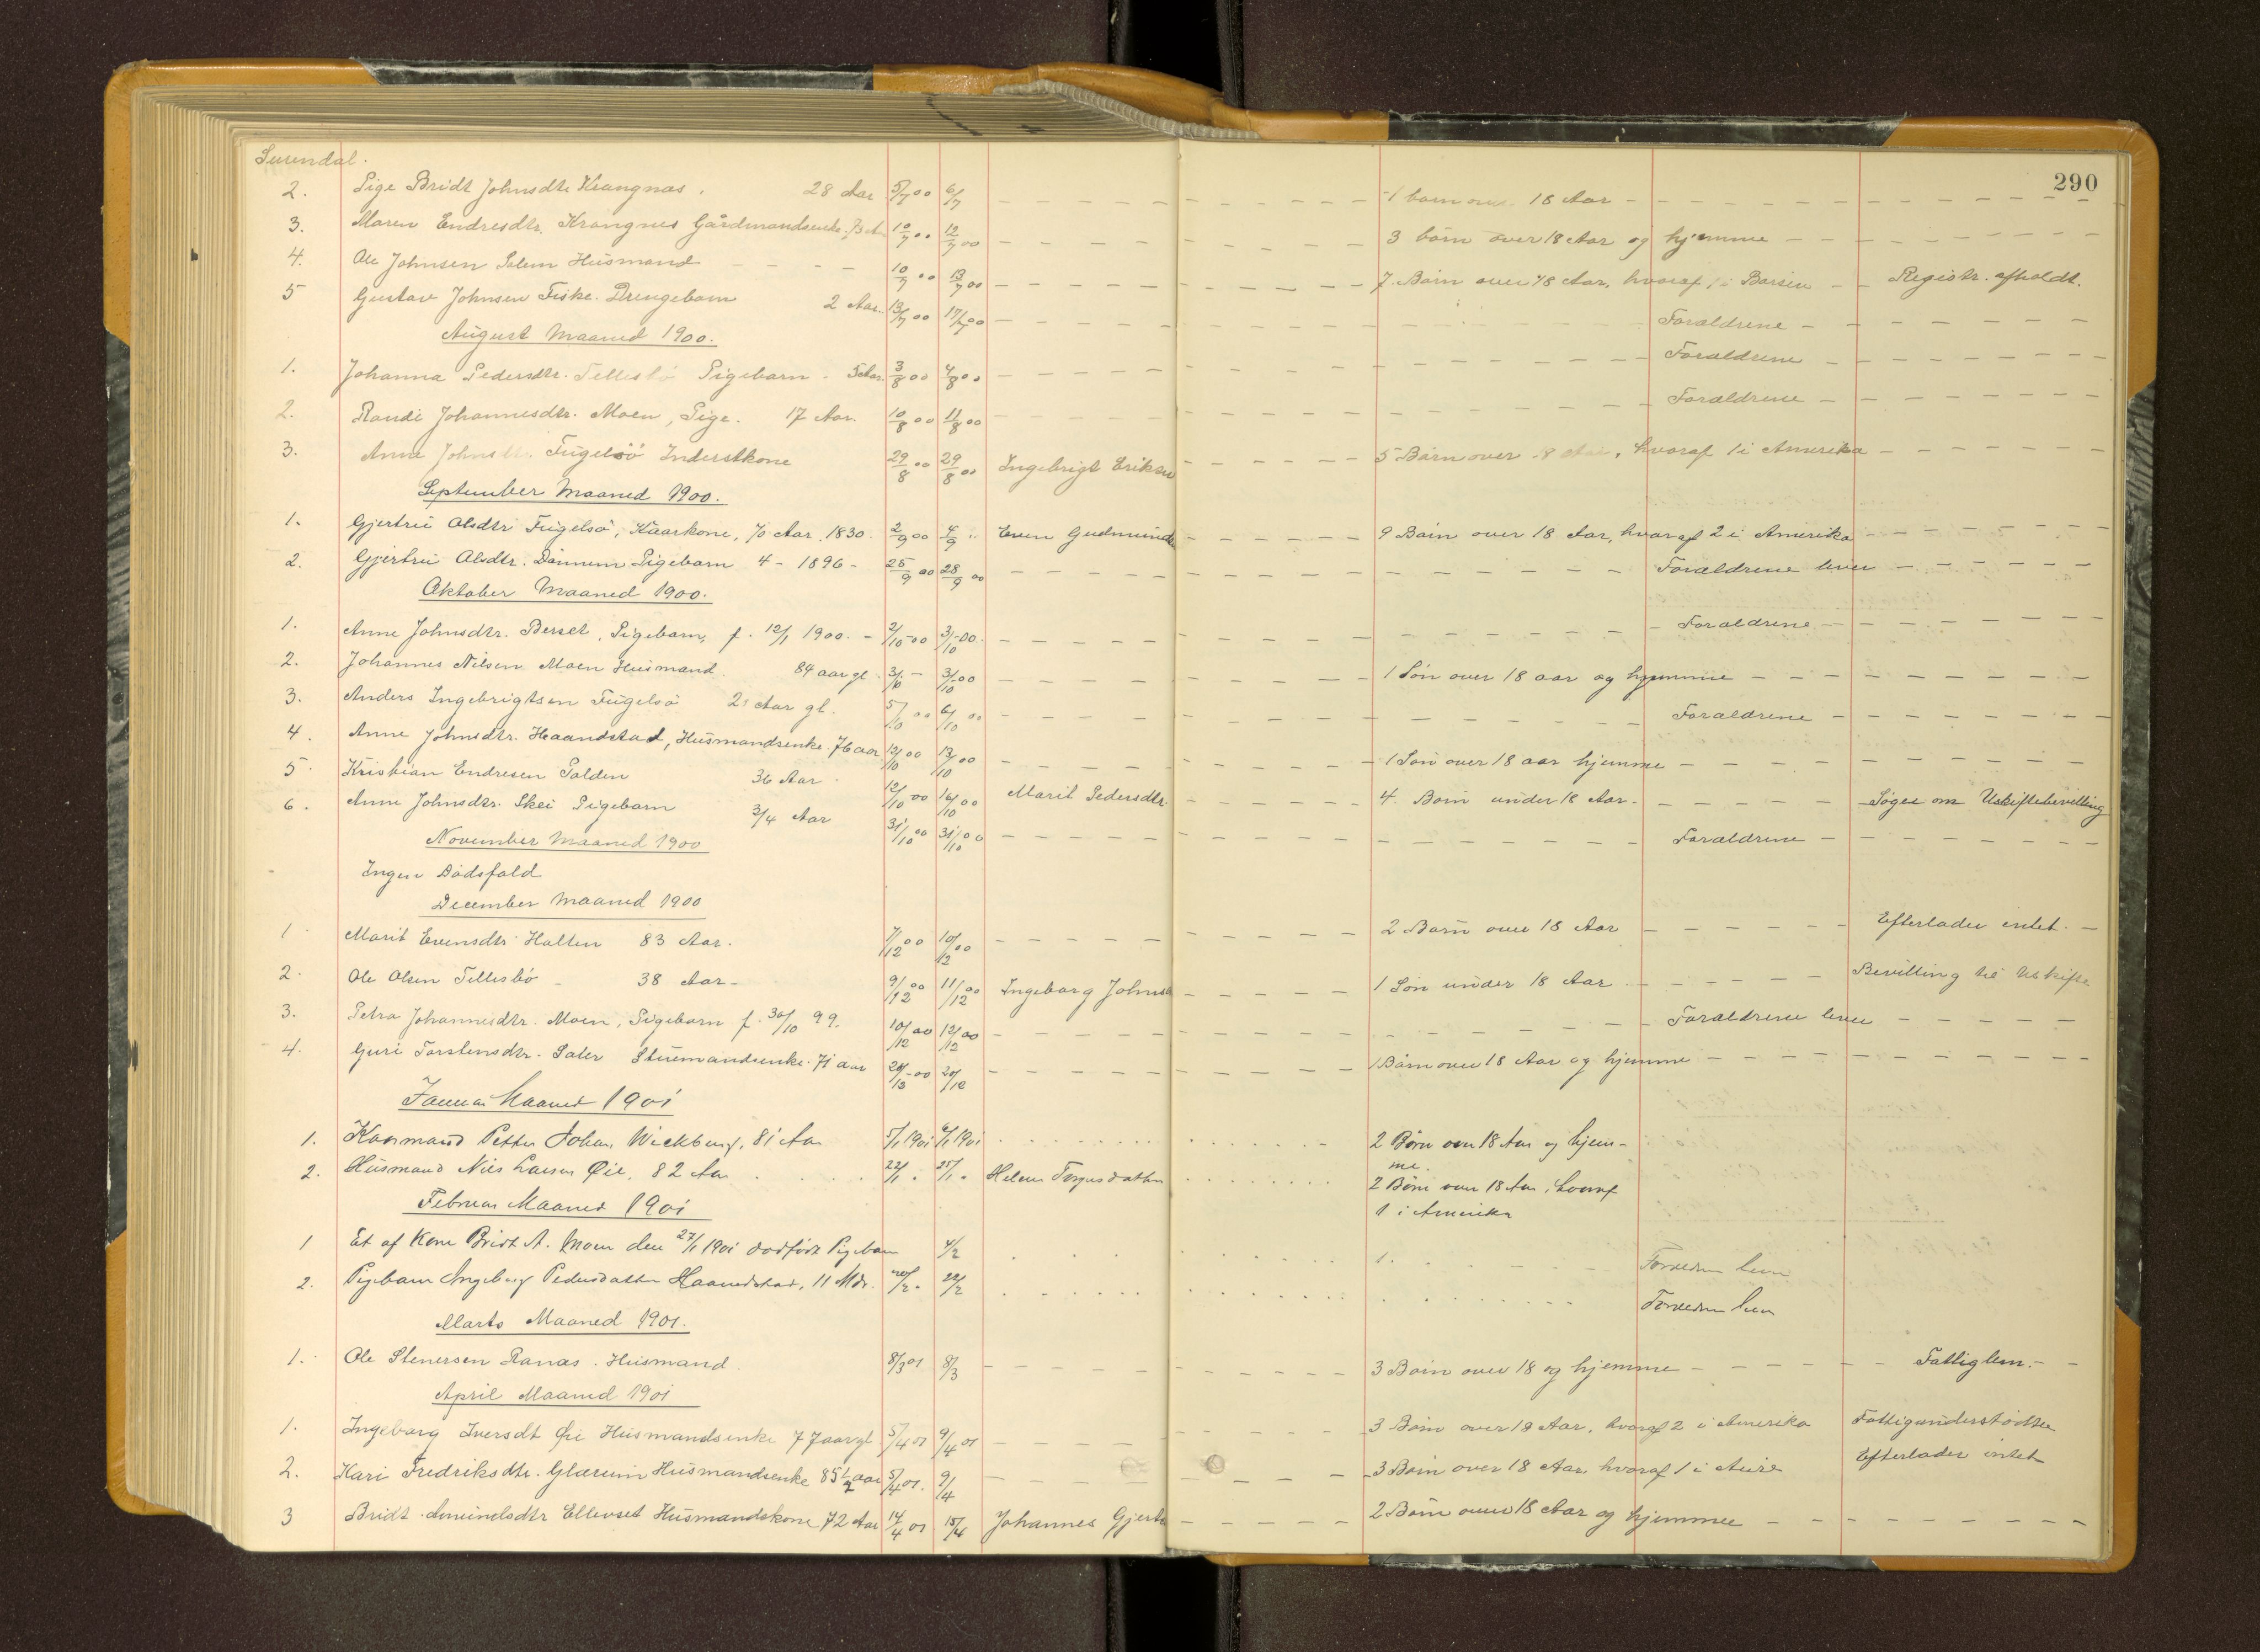 290
Surendal.
2. Pige Bridt Johnsdtr Krangnæs. 28 Aar 5/7 00 6/7 1 barn over 18 Aar
3. Maren Endresdtr. Krangnes Gårdmandsenke 10/7 00 12/7 00 3 børn over 18 Aar og hjemme
4. Ole Johnsen Solem Husmand 10/7 00 13/7 00 7 Børn over 18 Aar, hvoraf 1 i Registr. afholdt.
5 Gustav Johnsen Fiske. Drengebarn 2 Aar. 13/7 00 17/7 00 Forældrene
August Maaned 1900.
1. Johanna Pedersdtr. Tellesbø Pigebarn 3/8 00 4/8 00 Forældrene
2. Randi Johannesdtr. Moen, Pige. 17 Aar. 10/8 00 11/8 00 Forældrene
3. Anne Johnsdtr. Fugelsö Inderstkone 29/8 00 29/8 00 Ingebrigt Eriksen 5 Børn over 18 Aar, hvoraf 1 i Amerika
September Maaned 1900.
1. Gjertru Olsdtr Fugelsö, Kaarkone, 70 Aar, 1830. 2/9 00 4/9 " Even Gudmunds 9 Børn over 18 Aar, hvoraf 2 i Amerika
2. Gjertru Olsdtr. Dønnem Pigebarn 4 - 1896 - 25/9 00 28/9 00 Forældrene lever
Oktober Maaned 1900.
1. Anne Johnsdtr. Berset, Pigebarn, f. 12/1 1900. - 2/10-00 3/10-00. Forældrene
2. Johannes Nilsen Moen Husmand. 84 aar gl. 3/10 - 3/10-00 1 Søn over 18 aar og hjemme
3. Anders Ingebrigtsen Fugelsö Aar gl. 5/10 00 6/10 00 Forældrene
4. Anne Johnsdtr. Haandstad, Husmandsenke. 76 aar 12/10 00 13/10 00 1 Søn over 18 aar hjemme
5. Kristian Endresen Solden 36 Aar 12/10 00 16/10 00 Marit Pedersdtr. 4 Børn under 18 Aar. Søges om Uskiftebevilling
6. Anne Johnsdtr. Skei Pigebarn 3/4 Aar 31/10 00 31/10 00 Forældrene
November Maaned 1900
Ingen Dødsfald
December Maaned 1900
1 Marit Evensdtr Halten 83 Aar. 7/12 00 10/12 00 2 Børn over 18 Aar Efterlader intet.
2. Ole Olsen Tellesbö 38 Aar 9/12 00 11/12 00 Ingeborg Johnsd 1 Søn under 18 Aar Bevilling til Uskifte
3. Petra Johannesdtr. Moen, Pigebarn f. 30/10 99. 10/12 00 12/12 00 Forældrene lever
4. Guri Torstensdtr. Sæter 71 aar 20/12 1 Børn over 18 Aar og hjemme
Januar Maaned 1901
1. Kaarmand Petter Johan Wickberg, 81 Aar 5/1 1901 6/1 1901 2 Børn over 18 Aar og hjem-
me.
2. Husmand Nils Larsen Øie, 82 Aar 22/1 25/1 2 Børn over 18 Aar, hvoraf
1 i Amerika
Februar Maaned 1901
1 Et af Kone Bridt A. Moen den 27/1 1901 dødfødt Pigebarn 4/2 1. Forældrene lever
2. Pigebarn Ingeborg Pedersdatter Haandstad, 11 Mdr. 20/2 22/2 Forældrene lever
Marts Maaned 1901.
1. Ole Stenersen Ranæs. Husmand 8/3 01 8/3 3 Børn over 18 og hjemme Fattiglem.
April Maaned 1901
1. Ingeborg Iversdt Øie Husmandsenke 77 aar gl 5/4 01 9/4 01 3 Børn over 18 Aar, hvoraf 2 i Amerika Fattigunderstødtes
2. Kari Fredriksdtr. Glærum Husmandsenke 85 1/2 aar 5/4 01. 9/4 3 Børn over 18 Aar, hvoraf 1 i Aure Efterlader intet
3 Bridt Amundsdtr Ellevset Husmandskone 72 Aar 14/4 01 15/4 Johannes Gjerts 2 Børn over 18 Aar og hjemme